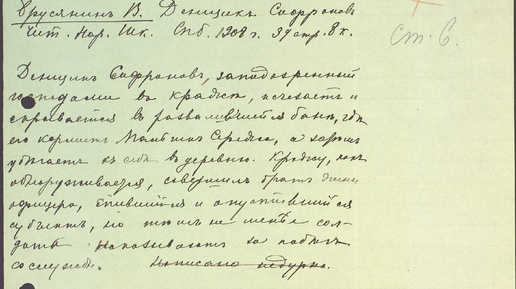 Брусянин В. Денщик Сафронов
Чит. Нар. Шк. Спб. 1908 г. 39 стр. 8 к.
Ст. 6.
Денщик Сафронов, заподозренный
господами в краже, исчезает и
скрывается в развалившейся бане, где
его кормит мальчик Сережа, а затем
убегает к себе в деревню. Кражу, как
обнаруживается, совершил брат жены
офицера, спившийся и опустившийся
субъект, но тем не менее сол-
дата наказывают за побег
со службы. Написано недурно.